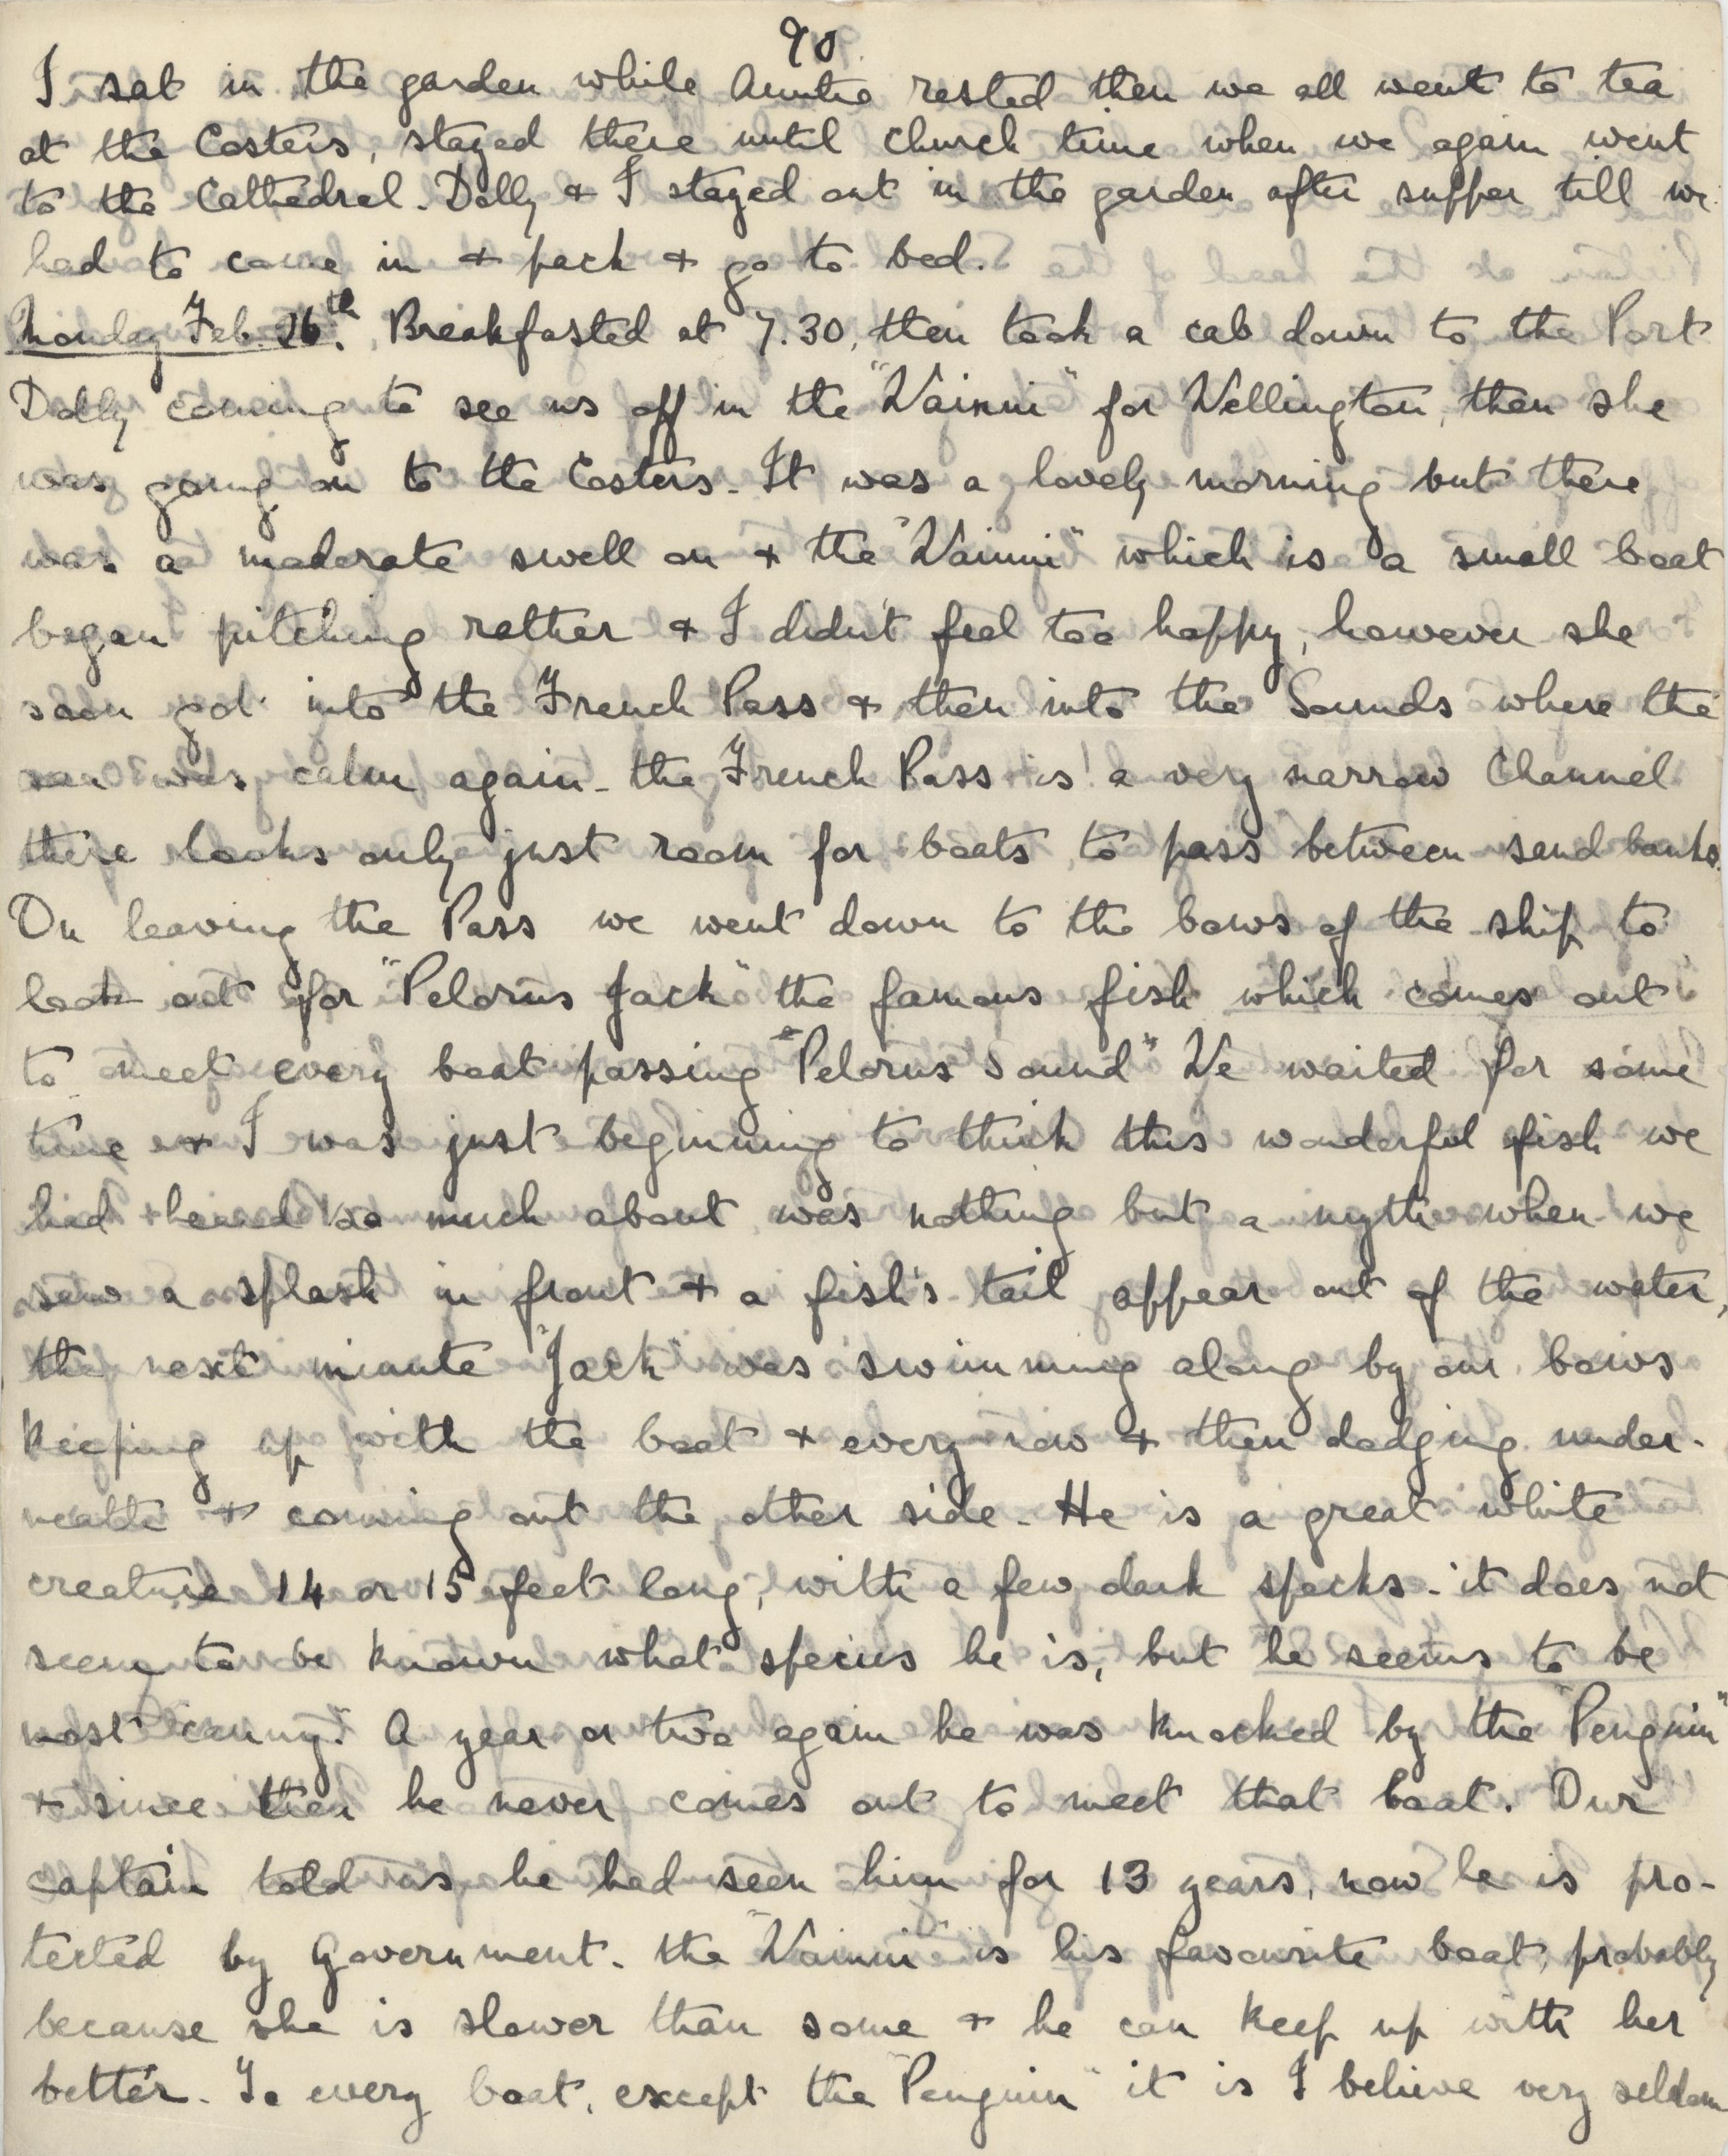 90
I sat in the garden while Auntie rested then we all went to tea
at the Costers, stayed there until Church time when we again went
to the Cathedral. Dolly & I stayed out in the garden after supper till we
had to come in & pack & go to bed.
Monday Feb. 26th. Breakfasted at 7.30, then took a cab down to the Port
Dolly coming to see us off in the "Wainui" for Wellington, then she
was going on to the Costers. It was a lovely morning but there
was a moderate swell on & the "Wainui" which is a small boat
began pitching rather & I didn't feel too happy, however she
soon got into the French Pass & then into the Sounds where the
sea was calm again - the French Pass is a very narrow Channel
there looks only just room for boats to pass between sand banks.
On leaving the Pass we went down to the bows of the ship to
look out for "Pelorus Jack" the famous fish which comes out
to meet every boat passing "Pelorus Sound" We waited for some
time & I was just beginning to think this wonderful fish we
had heard so much about was nothing but a myth when we
saw a splash in front & a fish's tail appear out of the water,
the next minute "Jack" was swimming along by our bows
keeping up with the boat & every now & then dodging under-
neath & coming out the other side. He is a great white
creature 14 or 15 feet long, with a few dark specks - it does not
seem to be known what species he is, but he seems to be
most "canny". A year or two again he was knocked by the "Penguin"
& since then he never comes out to meet that boat. Our
captain told us he had seen him for 13 years, now he is pro-
tected by Government. the "Wainui" is his favourite boat, probably
because she is slower than some & he can keep up with her
better. To every boat, except the "Penguin" it is I believe very seldom